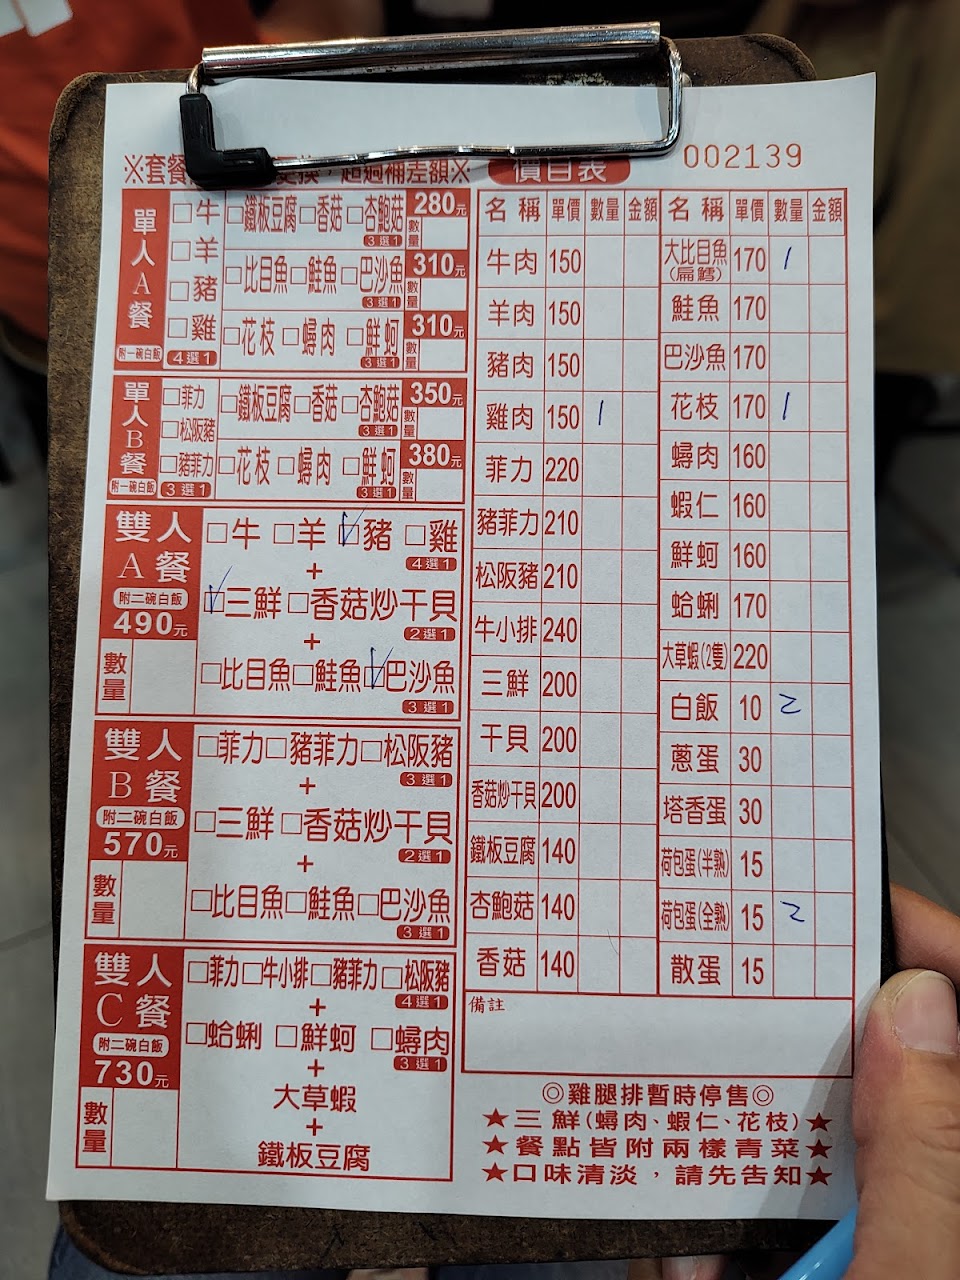 ※套餐 換，超過補差額※
價目表
002139
單人A餐
附一碗白飯
□牛
□羊
□豬
□雞
4選1
□鐵板豆腐□香菇□杏鮑菇
3選1
280元
數量
□比目魚□鮭魚□巴沙魚
3選1
310元
數量
□花枝□蟳肉□鮮蚵
3選1
310元
數量
單人B餐
附一碗白飯
□菲力
□松阪豬
□豬菲力
3選1
□鐵板豆腐□香菇□杏鮑菇
3選1
350元
數量
□花枝□蟳肉□鮮蚵
3選1
380元
數量
雙人A餐
附二碗白飯
490元
數量
□牛 □羊 ☑豬 □雞
4選1
+
☑三鮮□香菇炒干貝
2選1
+
□比目魚□鮭魚☑巴沙魚
3選1
雙人B餐
附二碗白飯
570元
數量
□菲力□豬菲力□松阪豬
3選1
+
□三鮮□香菇炒干貝
2選1
+
□比目魚□鮭魚□巴沙魚
3選1
雙人C餐
附二碗白飯
730元
數量
□菲力□牛小排□豬菲力□松阪豬
4選1
+
□蛤蜊 □鮮蚵 □蟳肉
3選1
+
大草蝦
+
鐵板豆腐
名稱 單價 數量 金額
牛肉 150
羊肉 150
豬肉 150
雞肉 150 1
菲力 220
豬菲力 210
松阪豬 210
牛小排 240
三鮮 200
干貝 200
香菇炒干貝 200
鐵板豆腐 140
杏鮑菇 140
香菇 140
名稱 單價 數量 金額
大比目魚(扁鱈) 170 1
鮭魚 170
巴沙魚 170
花枝 170 1
蟳肉 160
蝦仁 160
鮮蚵 160
蛤蜊 170
大草蝦(2隻) 220
白飯 10 2
蔥蛋 30
塔香蛋 30
荷包蛋(半熟) 15
荷包蛋(全熟) 15 2
散蛋 15
備註
◎雞腿排暫時停售◎
★三鮮(蟳肉、蝦仁、花枝)★
★餐點皆附兩樣青菜★
★口味清淡，請先告知★